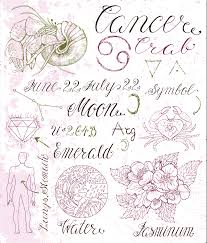 Cancer
Crab
June 22 July 22
Symbol
Moon
Emerald
Water
Jasminum